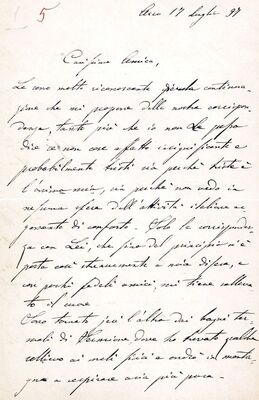 5
Arco 17 luglio 97
Carissima Amica,
Le sono molto riconoscente
zione che mi propone della nostra corrispon
denza, tanto più che io non Le posso
dire se non cose affatto insignificanti e
probabilmente tristi sia perchè triste è
l'anima mia, sia perchè non vedo in
nessuna sfera dell'attività italiana ar
gomento di conforto. Solo la corrisponden
za con Lei, che fino dal principio s'è
posta così strenuamente a mia difesa, e
con pochi fedeli amici, mi tiene solleva
to il cuore.
Sono tornato jeri l'altro dai bagni ter
mali di Sirmione dove ho trovato qualche
sollievo ai miei fisici e andrò in monta
gna a respirare aria più pura.